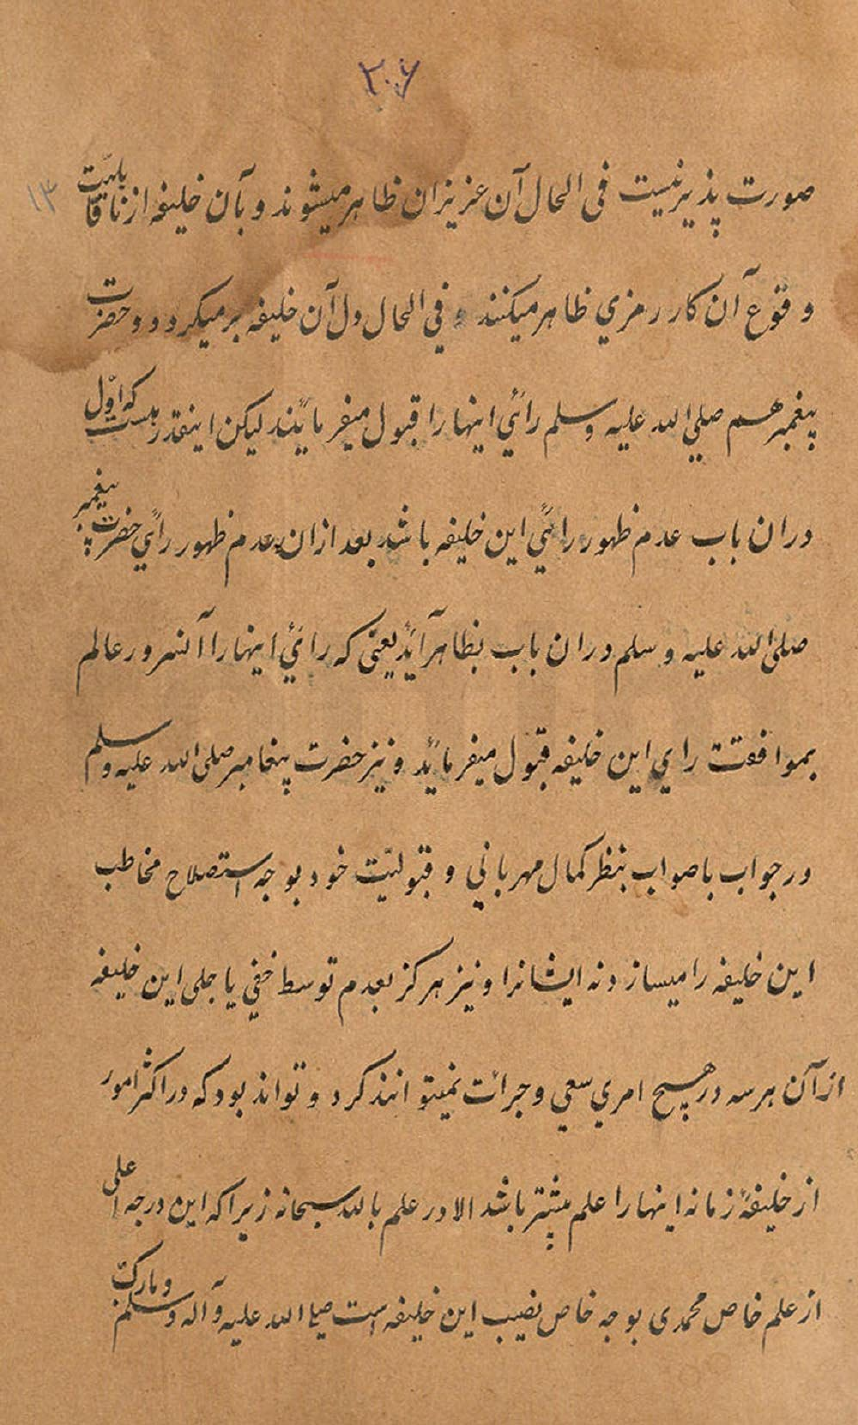 ۲۰۶
صورت پذیر نیست فی الحال آن عزیزان ظاهر میشوند و بآن خلیفه از ناقابلیّت
۱۳
وقوع آن کار رمزي ظاهر میکنند و في الحال دل آن خلیفه برمیگردد و حضرت
پیغمبر هم صلي الله علیه وسلم رائي اینها را قبول میفرمایند لیکن اینقدر هست که اوّل
دران باب عدم ظهور رائي این خلیفه باشد بعد ازان بعدم ظهور رائي حضرت پیغمبر
صلی الله علیه و سلم دران باب بظاهر آید یعنی که رائي اینها را آنسرور عالم
بموافقت راي این خلیفه قبول میفرماید و نیز حضرت پیغامبر صلی الله علیه وسلم
در جواب باصواب بنظر کمال مهرباني و قبولیّت خود بوجه استصلاح مخاطب
این خلیفه را میسازد نه ایشانرا و نیز هرکز بعدم توسط خفي یا جلی این خلیفه
از آن هرسه در هیچ امري سعي و جرائت نمیتوانند کرد و تواند بود که در اکثر امور
از خلیفهٔ زمانه اینها را علم بیشتر باشد الا در علم بالله سبحانه زیرا که این درجه اعلی
از علم خاص محمدی بوجه خاص نصیب این خلیفه است صلی الله علیه وآله وسلم و بارک